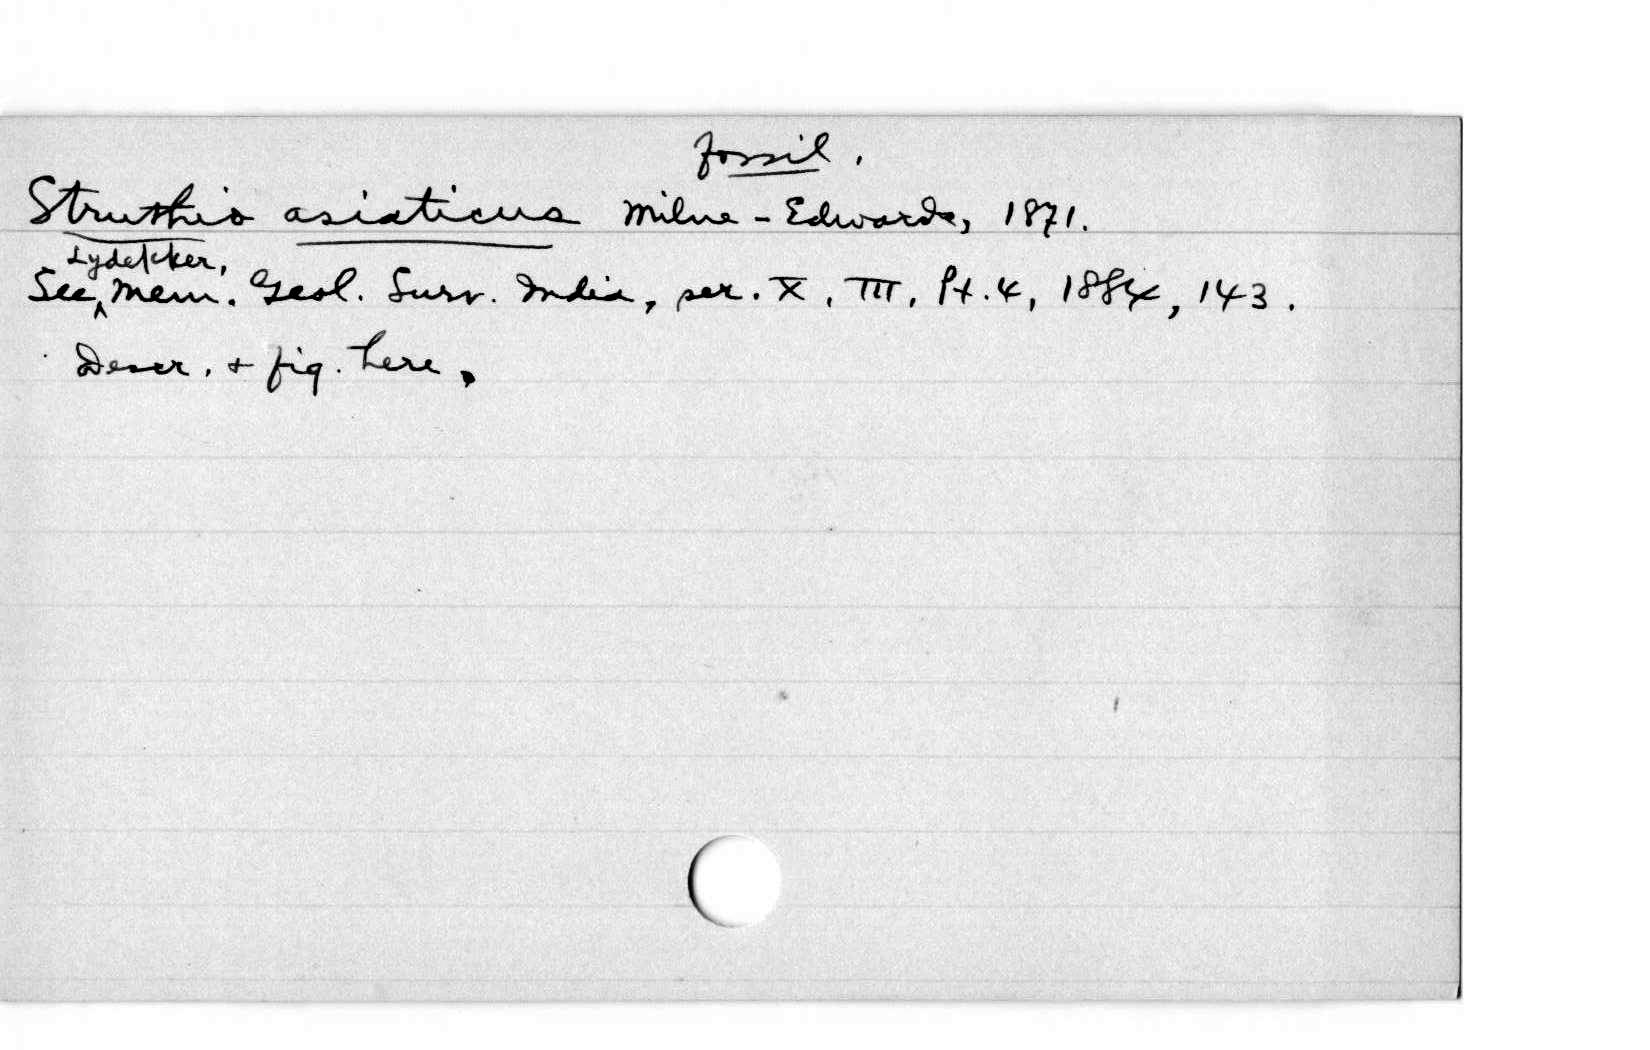 fossil.
Struthio asiaticus Milne-Edwards, 1871.
Lydekker,
See ^ Mem. Geol. Surv. India, ser. X, III, Pt. 4, 1884, 143.
Descr. + fig. here.